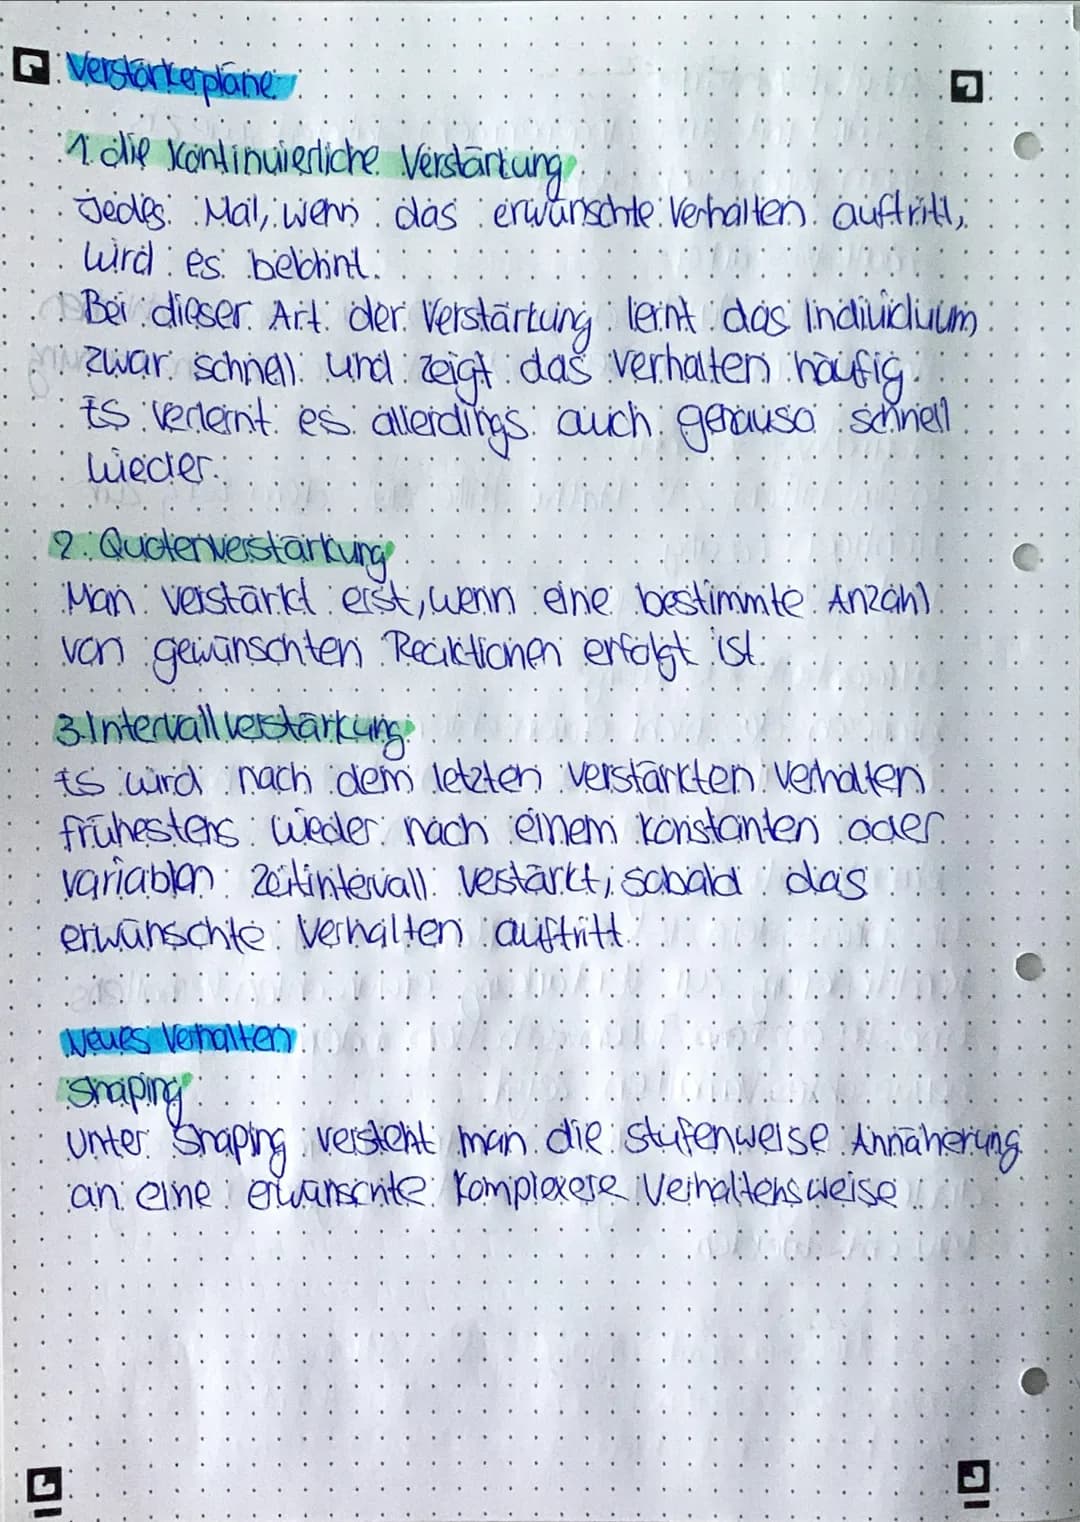 Verstärkerpläne
1. die kontinuierliche Verstärkung
Jedes Mal, wenn das erwünschte Verhalten auftritt,
wird es belohnt.
Bei dieser Art der Verstärkung lernt das Individuum
zwar schnell und zeigt das Verhalten häufig.
Es verlernt es allerdings auch genauso schnell
wieder.
2. Quotenverstärkung
Man verstärkt erst, wenn eine bestimmte Anzahl
von gewünschten Reaktionen erfolgt ist.
3. Intervallverstärkung
Es wird nach dem letzten verstärkten Verhalten
frühestens wieder nach einem konstanten oder
variablen Zeitintervall vestärkt, sobald das
erwünschte Verhalten auftritt.
Neues Verhalten
Shaping
Unter Shaping versteht man die stufenweise Annäherung
an eine erwünschte komplexere Verhaltensweise.